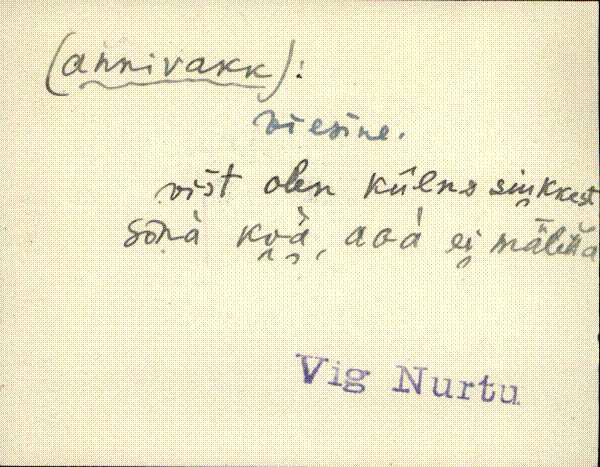 (annivakk):
viesine.
vist olen külnᴅ siu̯kkest
sõnà ku̯à̯, aga ei̯ mälettä
Vig Nurtu